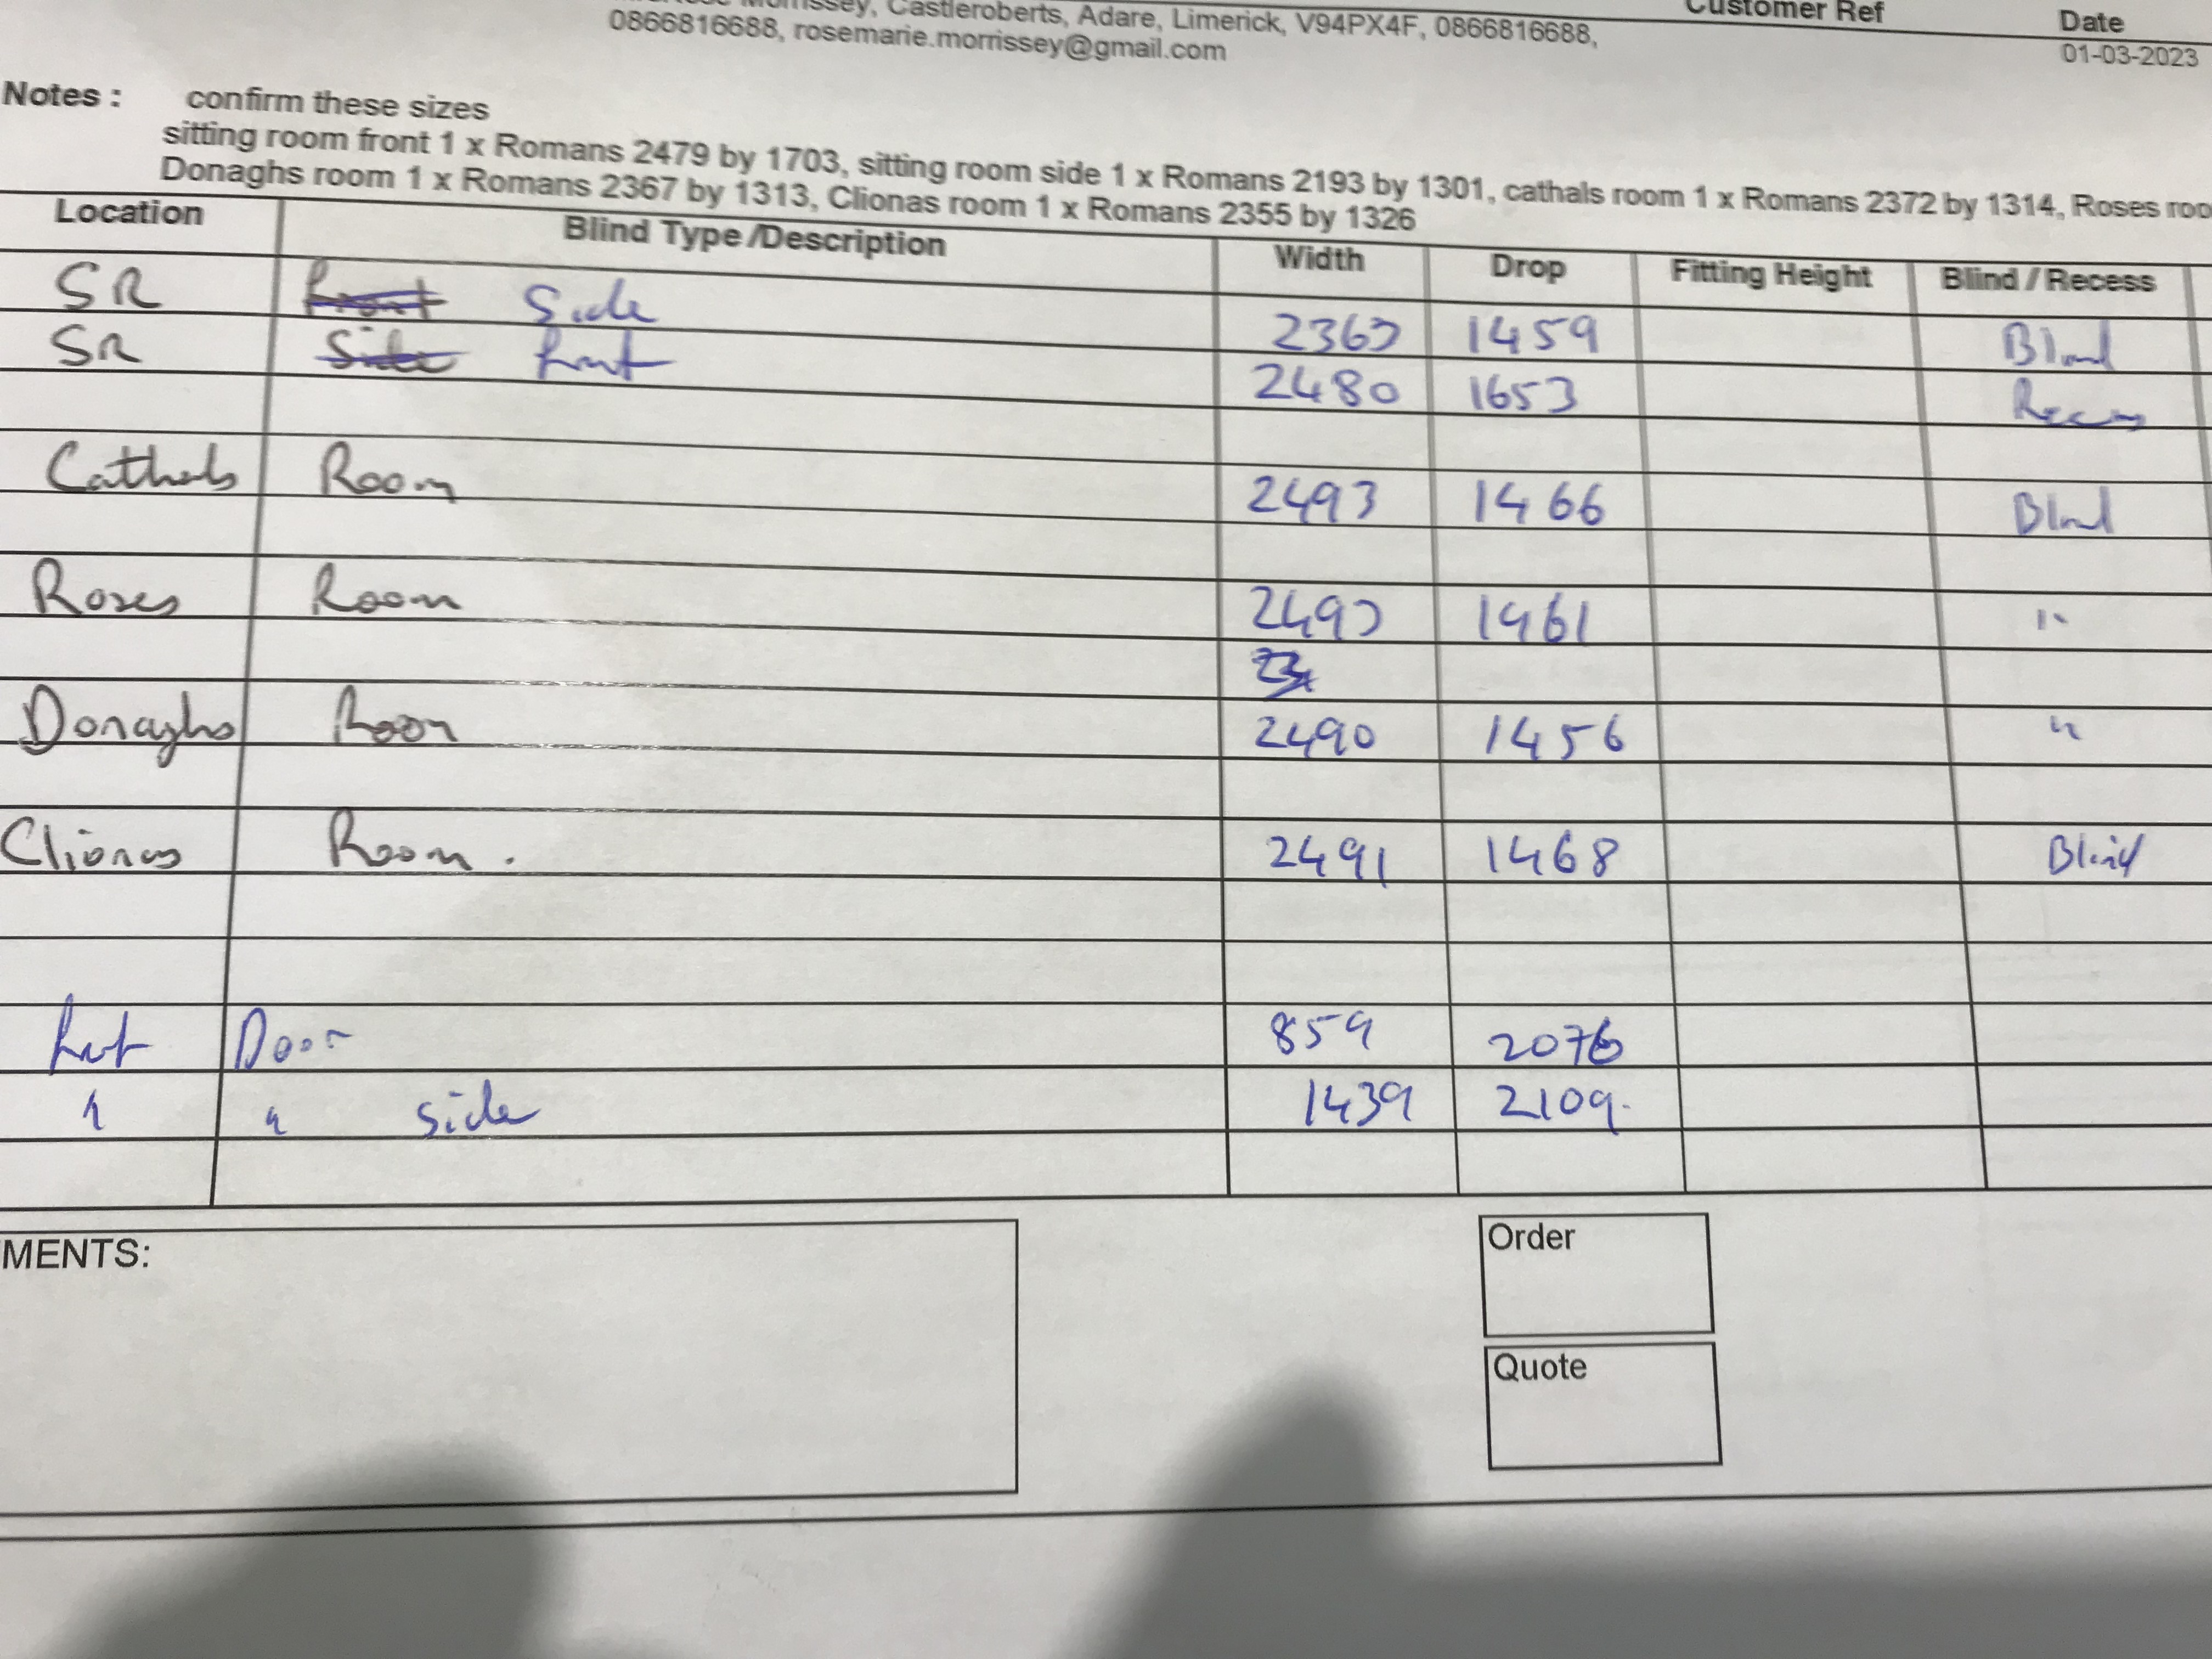 Morrissey, Castleroberts, Adare, Limerick, V94PX4F, 0866816688,
0866816688, rosemarie.morrissey@gmail.com
Customer Ref
Date
01-03-2023
Notes : confirm these sizes
sitting room front 1 x Romans 2479 by 1703, sitting room side 1 x Romans 2193 by 1301, cathals room 1 x Romans 2372 by 1314, Roses roo
Donaghs room 1 x Romans 2367 by 1313, Clionas room 1 x Romans 2355 by 1326
Location Blind Type /Description Width Drop Fitting Height Blind / Recess
SR Front Side 1459 Blind
SR Side Frnt 2480 1653 Recess
Cathals Room 2493 1466 Blind
Roses Room 1461 "
Donaghs Room 2490 1456 "
Clionas Room . 2491 1468 Blind
Frnt Door 859 2076
" " side 1439 2109.
MENTS:
Order
Quote